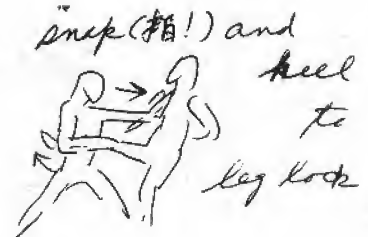 snap (拍!) and
heel
to
leg lock